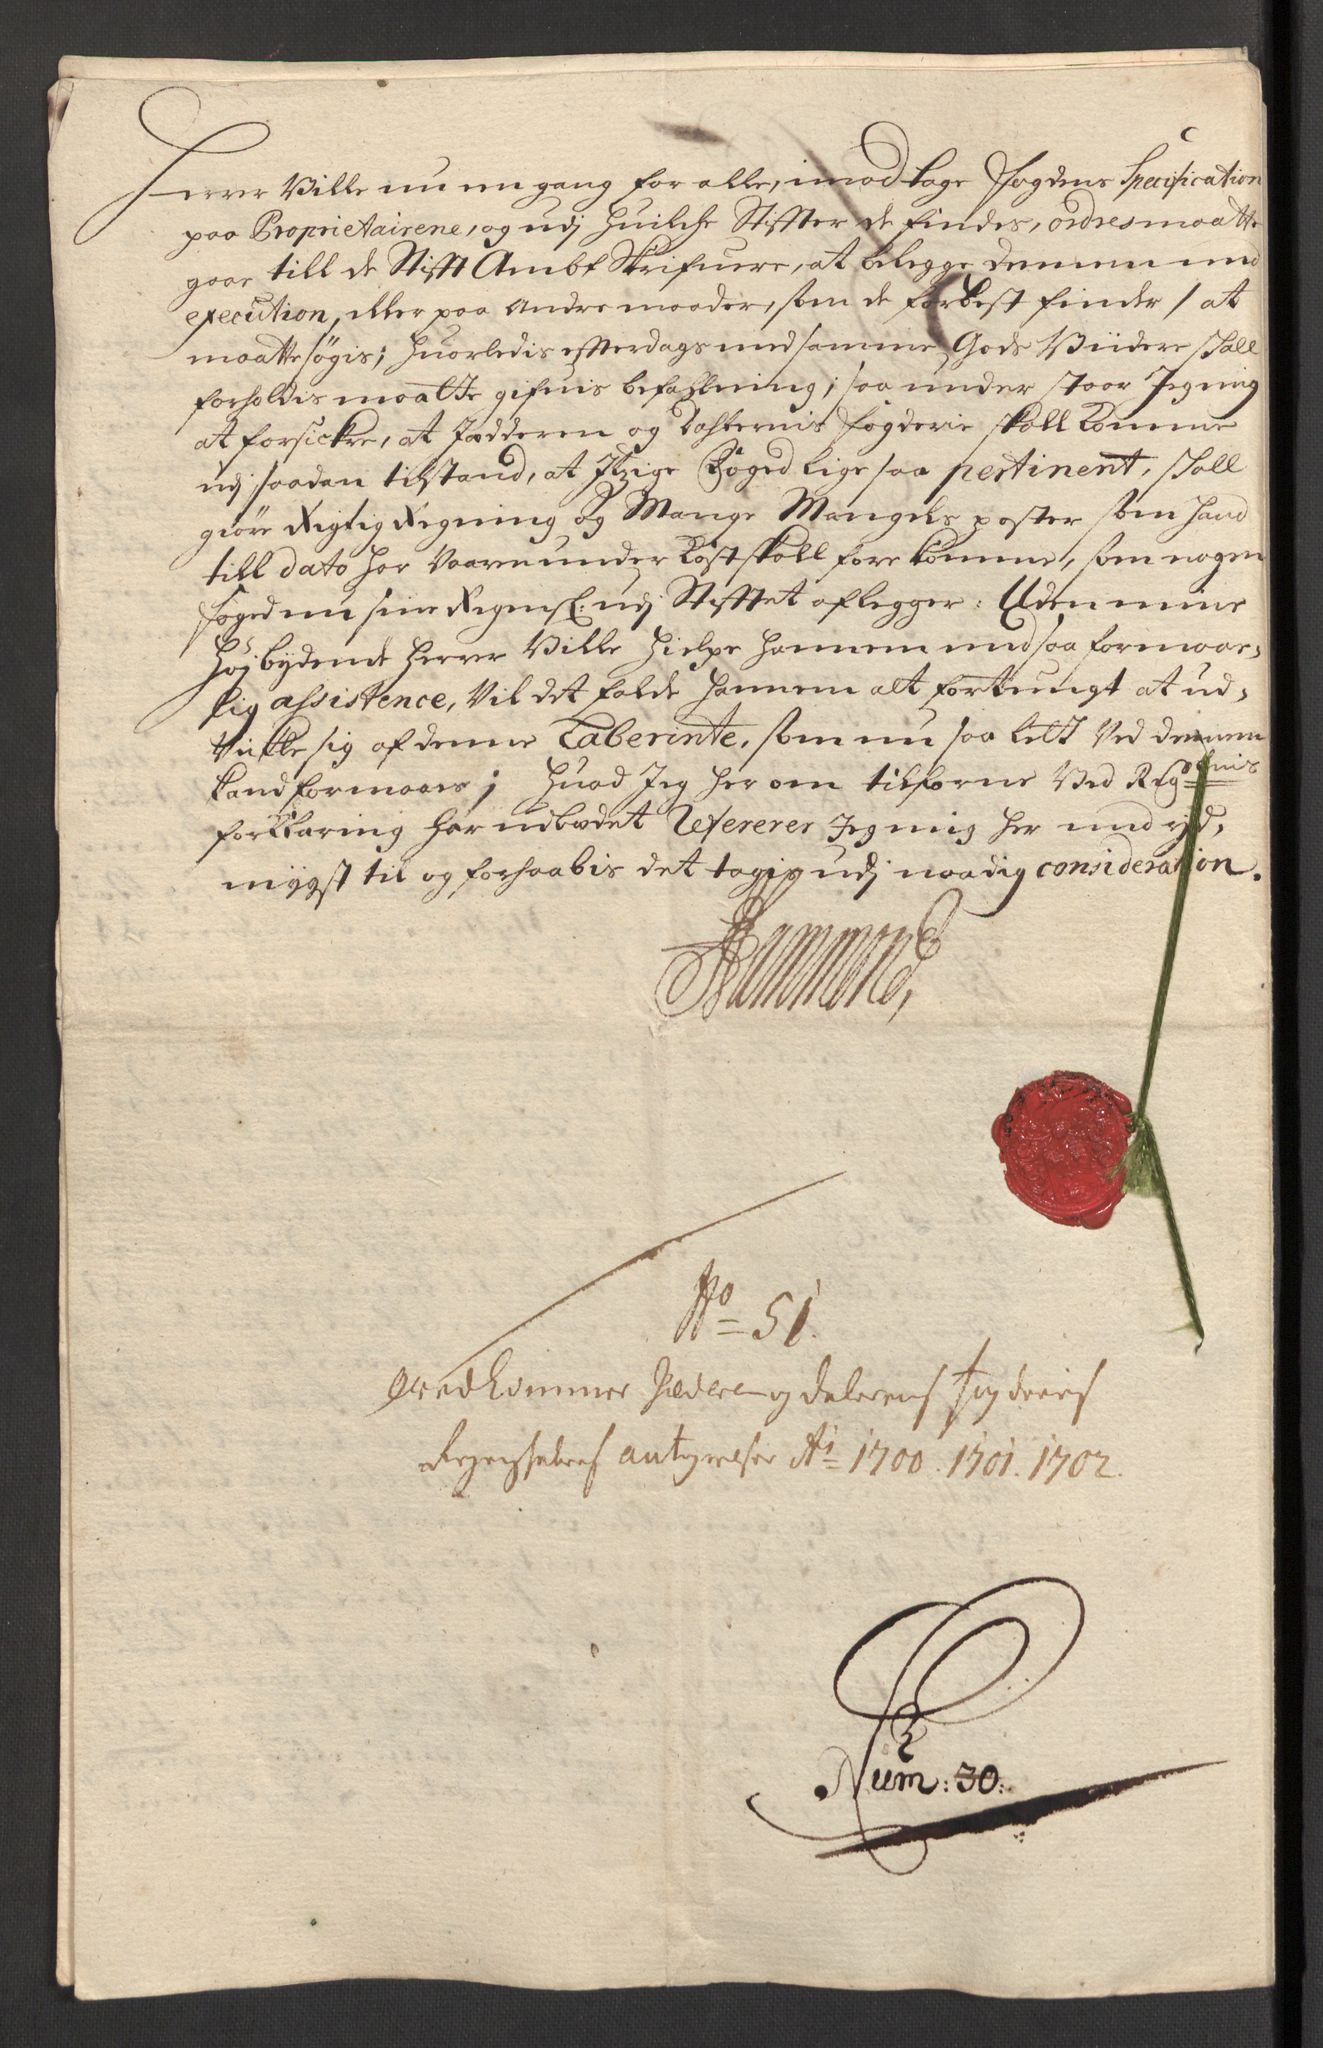 Herrer Ville nu en gang for alle, imod tage Fogdens Specification
paa Proprietairene, og udj huilche Stiffter de findes, ordres maatte
gaae till de Stifft Ambt Skrifuere, at belegge dennem med
execution, eller paa andre maader, som de for best finder / at
maatte søgis; huorledis effterdags med samme Gods Viidere skall
forholdis maatte gifuis befahlning; saa under staar Jeg mig
at forsickre, at Jædderen og Dahlernis fogderie skall komme
udj saadan tilstand, at Jtzige foged lige saa pertinent, skall
giøre Rigtig Regning og Mange Mangels poster som hand
till dato har Vaaren under kast skall forekomme, som nogen
foged nu sine Regensk: udj Stifftet aflegger: Uden mine
Høybydende Herrer Ville hielpe hannem med saa formaae-
lig assistence, Vil det falde hannem alt for tungt at ud-
Vikle sig af denne Laberinte, som nu saa lett Ved dennem
kand formaaes; huad Jeg her om tilforne Ved Regns
forklaring har udbædet Refererer Jeg mig her med yd-
mygst til og forhaabis det tagis udj naadig consideration.
Hammond,
No 51.
Vedkommer Jæderen og dalernes fogderies
Regenskabers antegnelser Ai 1700. 1701. 1702.
Num: 30: